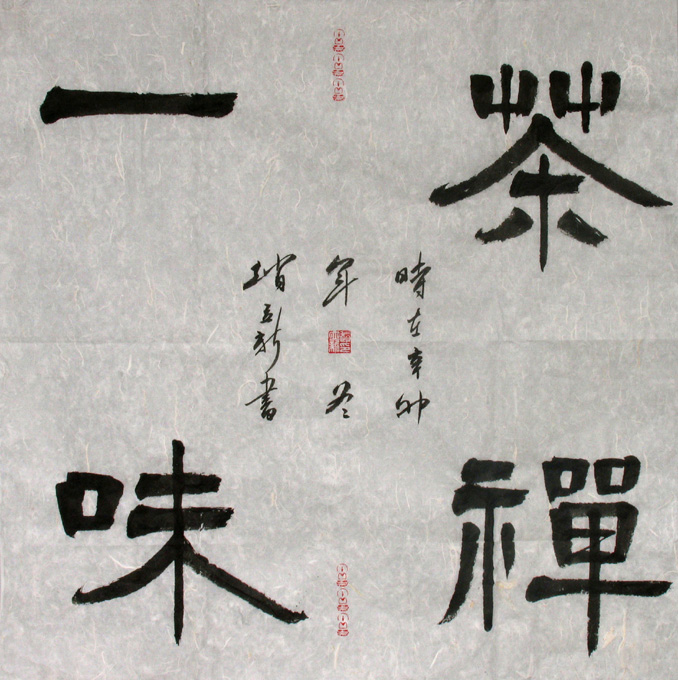 茶禪
一味
時在辛卯
年冬
趙立新書